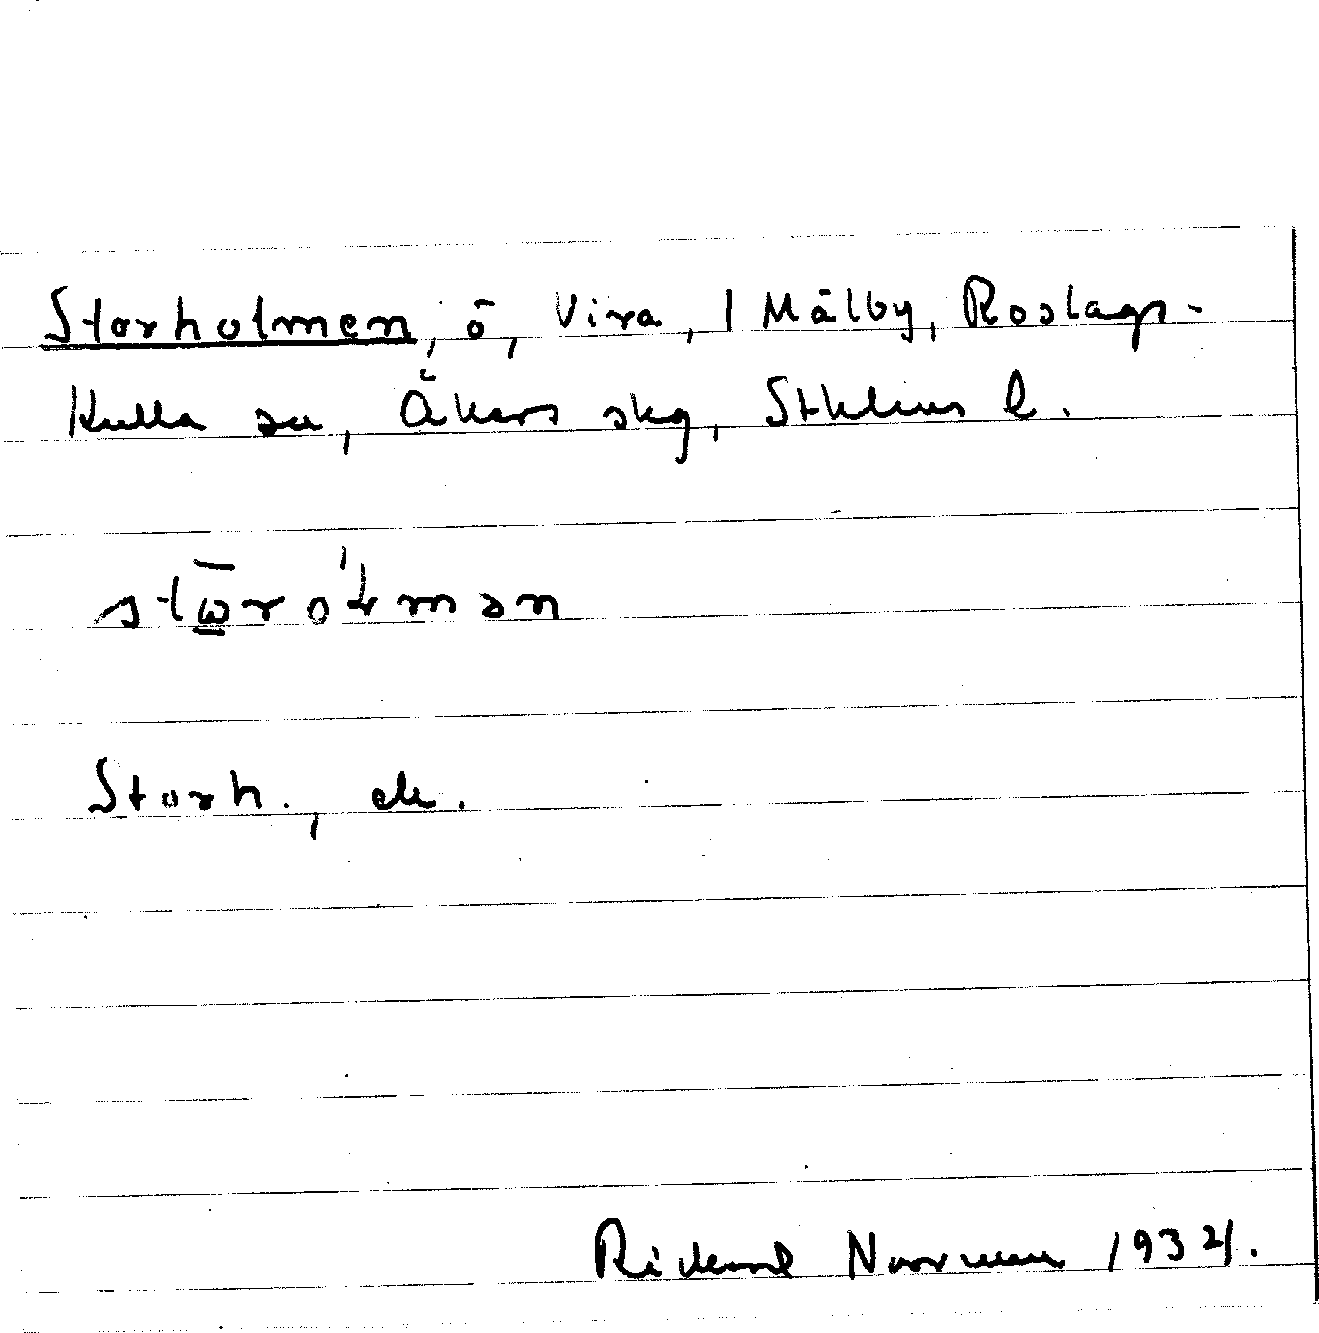 Storholmen, ö, Vira, l Målby, Roslags-
Kulla sn, Åkers skg, Sthlms l.
stωroʹɫmən
Storh., ek.
Rickard Norrman 1934.